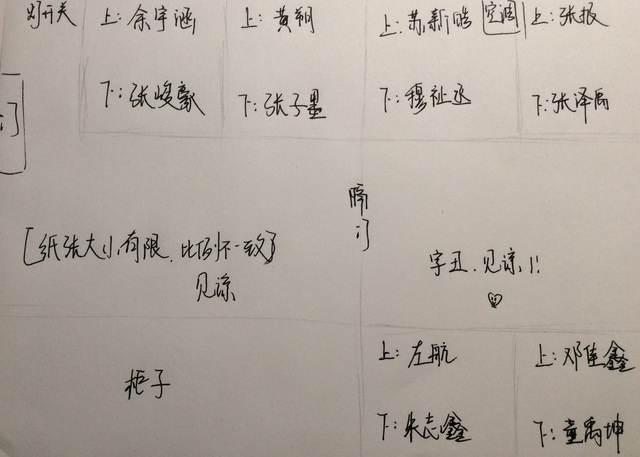 灯开关
上:余宇涵
上:黄朔
上:苏新皓
空调
上:张极
门
下:张峻豪
下:张子墨
下:穆祉丞
下:张泽禹
隔门
[纸张大小有限.比例不一致]
见谅
字丑.见谅!!
柜子
上:左航
上:邓佳鑫
下:朱志鑫
下:童禹坤